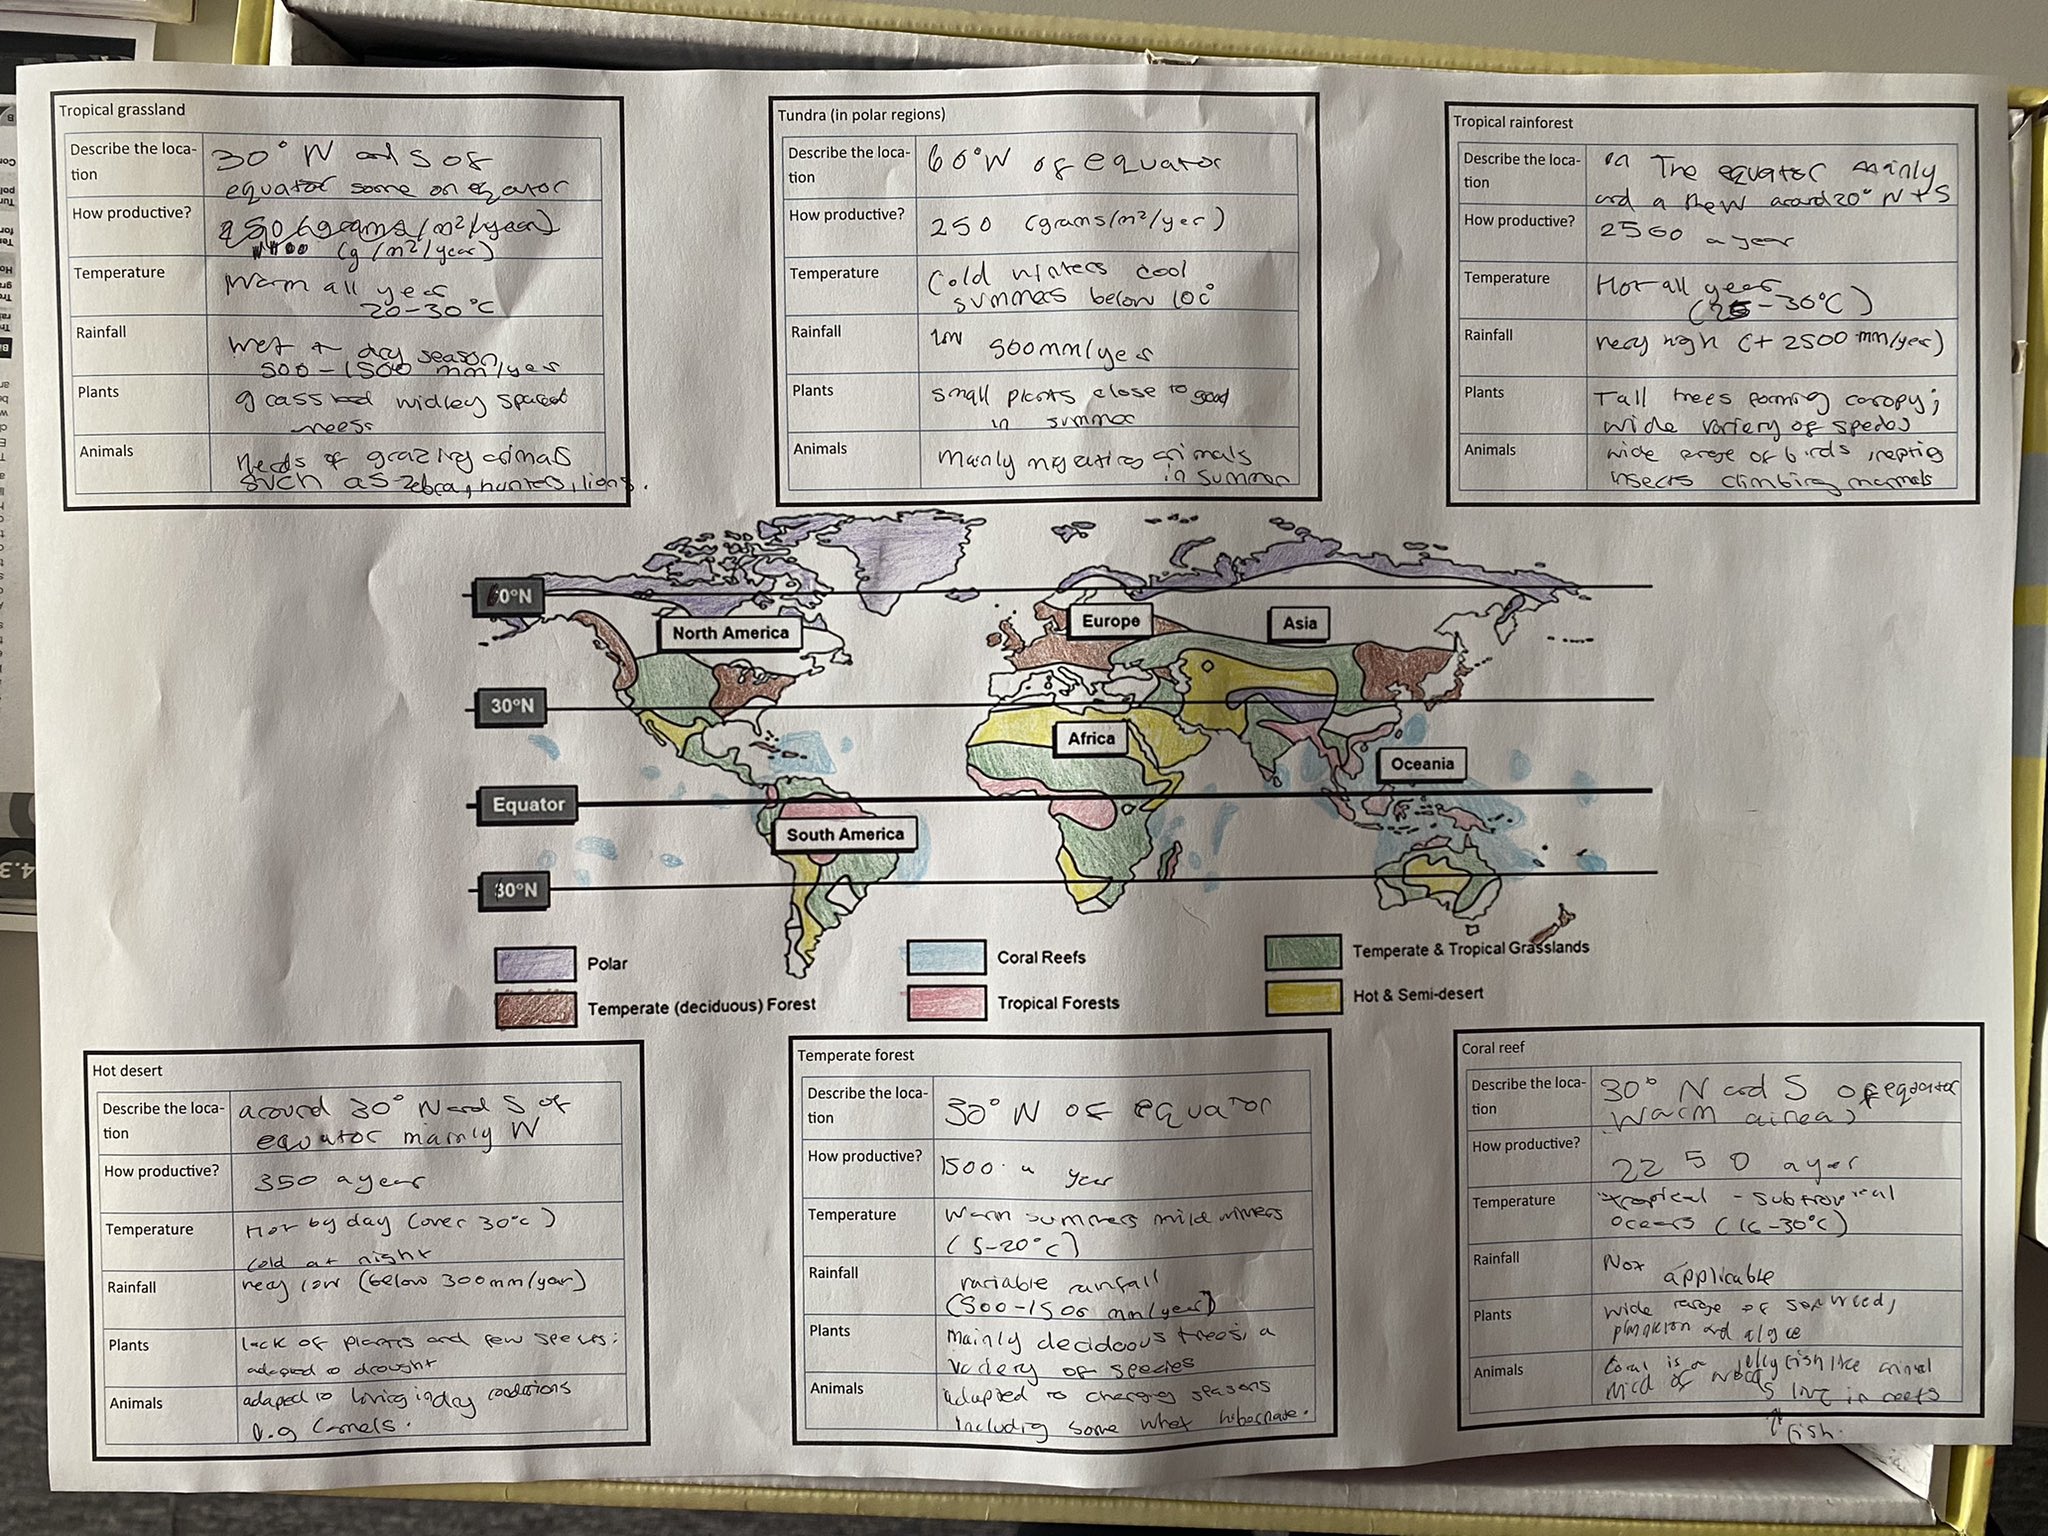 Tropical grassland
Describe the loca-
tion
30° N and S of
equator some on eqator
How productive?
(grams/m²/year)
(g/m²/year)
Temperature
Warm all year
20-30°C
Rainfall
wet + dry season
500-1500 mm/year
Plants
grass and widley spaced
Animals
herds of grazing animals
such as zebra, hunters, lions.
Tundra (in polar regions)
Describe the loca-
tion
60°N of equator
How productive?
250 (grams/m²/year)
Temperature
Cold winters cool
summers below 10c°
Rainfall
low
500mm/year
Plants
small plants close to
in summer
Animals
Mainly migrating animals
in summer
Tropical rainforest
Describe the loca-
tion
on The equator mainly
and a few around 20° N + S
How productive?
2500 a year
Temperature
Hot all year
(25-30°C)
Rainfall
very high (+ 2500 mm/year)
Plants
Tall trees forming canopy;
wide variery of species
Animals
wide range of birds,
insects climbing mammals
60°N
North America
Europe
Asia
30°N
Africa
Oceania
Equator
South America
30°N
Polar
Coral Reefs
Temperate & Tropical Grasslands
Temperate (deciduous) Forest
Tropical Forests
Hot & Semi-desert
Hot desert
Describe the loca-
tion
around 30° N and S of
equator mainly N
How productive?
350 a year
Temperature
Hot by day (over 30°c)
cold at night
Rainfall
very low (below 300mm/year)
Plants
lack of plants and few species:
adapted to drought
Animals
adaped to living in dry conditions
e.g Camels.
Temperate forest
Describe the loca-
tion
30° N OF equator
How productive?
1500 a year
Temperature
Warm summers mild winters
(5-20°c)
Rainfall
variable rainfall
(500-1500 mm/year)
Plants
Mainly decidoous trees, a
variery of species
Animals
adapted to changing seasons
Including some what hibernate.
Coral reef
Describe the loca-
tion
30° N and S of equator
Warm
How productive?
2250 a year
Temperature
tropical - subtropical
oceans (16-30°c)
Rainfall
Not applicable
Plants
wide range of
plankton and algae
Animals
Coral is a jelly fish like animal
live in reefs
fish.